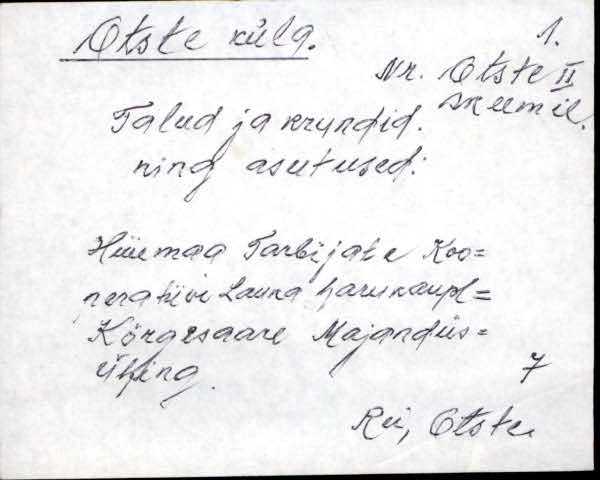 Otste küla. 1.
Nr. Otste II
skeemil.
Talud ja krundid.
ning asutused:
Hiiumaa Tarbijate Koo=
peratiivi Lauka harukaupl=
Kõrgesaare Majandüs=
ühing. 7
Rei, Otste